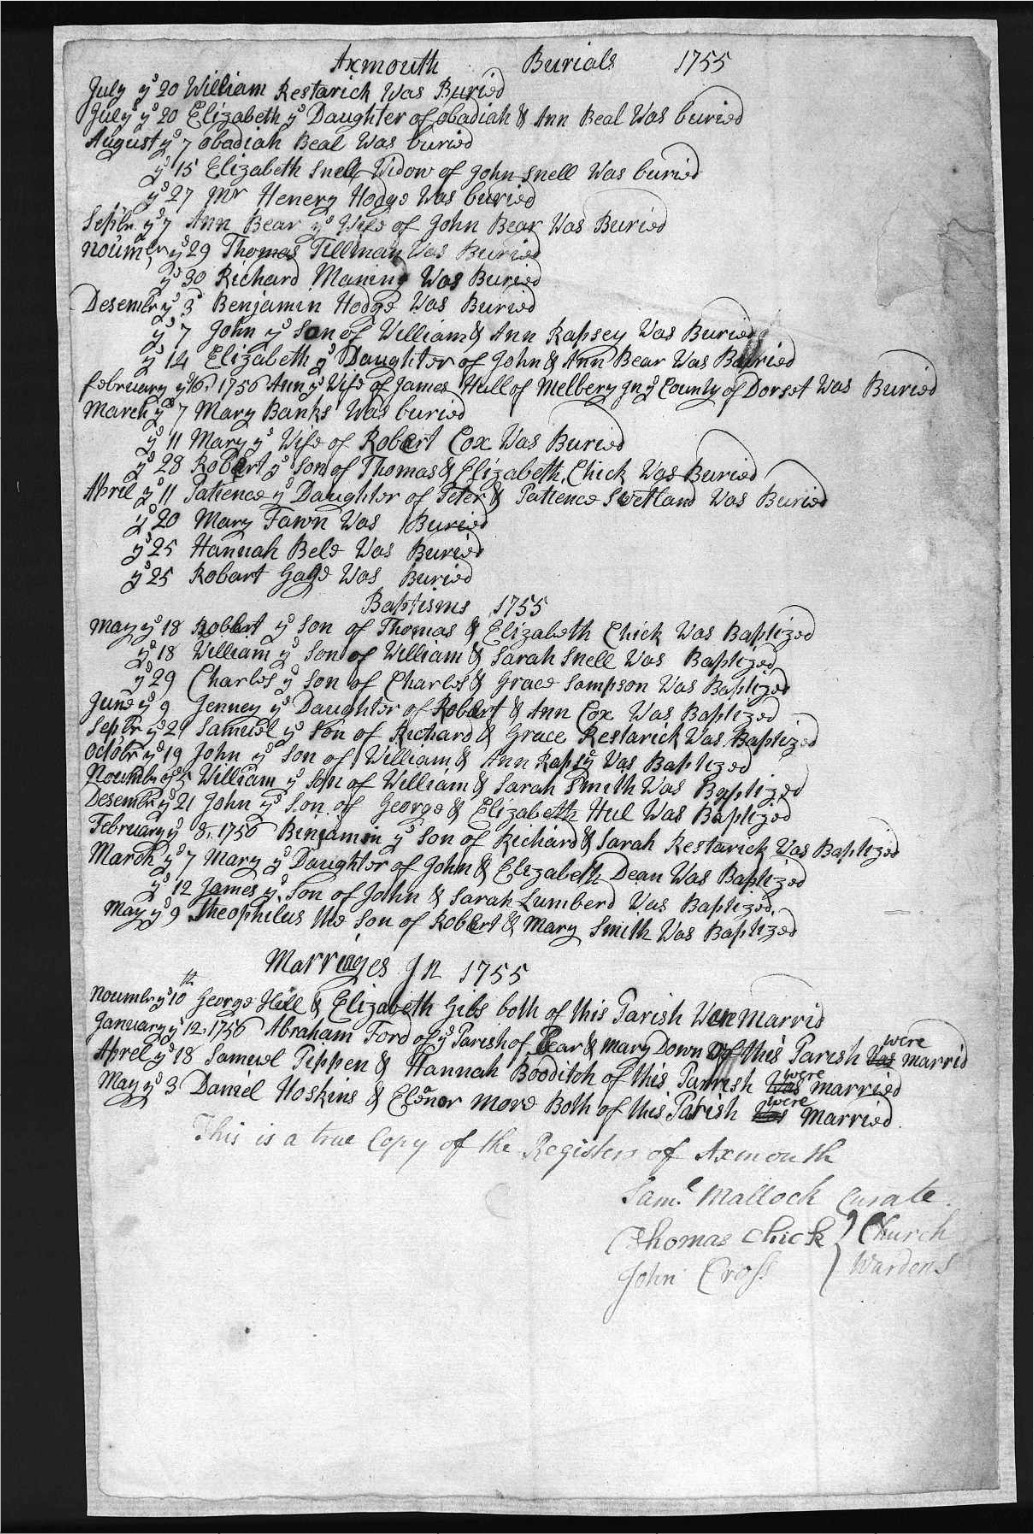 Axmouth Burials 1755
July ye 20 William Restarick Was Buried
July ye 20 Elizabeth ye Daughter of obadiah & Ann Beal Was buried
August ye 7 obadiah Beal Was buried
ye 15 Elizabeth Snell Widow of John Snell Was buried
ye 27 Mr Henery Hodge Was buried
Septbr ye 7 Ann Bear ye Wife of John Bear Was Buried
Noumbr ye 29 Thomas Tillman Was Buried
ye 30 Richard Maning Was Buried
Desembr ye 3 Benjamin Hodge Was Buried
ye 7 John ye Son of William & Ann Rapsey Was Buried
ye 14 Elizabeth ye Daughter of John & Ann Bear Was Buried
February ye 6 1756 Ann ye Wife of James Hull of Melbery In ye County of Dorset Was Buried
March ye 7 Mary Banks Was buried
ye 11 Mary ye Wife of Robart Cox Was Buried
ye 28 Robart ye Son of Thomas & Elizabeth Chick Was Buried
April ye 11 Patience ye Daughter of Peter & Patience Swetland Was Buried
ye 20 Mary Fawn Was Buried
ye 25 Hannah Bele Was Buried
ye 25 Robart Gage Was Buried
Baptisms 1755
May ye 18 Robbart ye Son of Thomas & Elizabeth Chick Was Baptized
ye 18 William ye Son of William & Sarah Snell Was Baptized
ye 29 Charles ye Son of Charles & Grace Sampson Was Baptized
June ye 9 Jenney ye Daughter of Robart & Ann Cox Was Baptized
Septbr ye 29 Samuel ye Son of Richard & Grace Restarick Was Baptized
Octobr ye 19 John ye Son of William & Ann Rapsey Was Baptized
Noumbr ye 5 William ye Son of William & Sarah Smith Was Baptized
Desembr ye 21 John ye Son of George & Elizabeth Hul Was Baptized
February ye 8, 1756 Benjamin ye Son of Richard & Sarah Restarick Was Baptized
March ye 7 Mary ye Daughter of John & Elizabeth Dean Was Baptized
ye 12 James ye Son of John & Sarah Lumberd Was Baptized
May ye 9 Theophilus the Son of Robart & Mary Smith Was Baptized
Marriages In 1755
Noumbr ye 10th George Hill & Elizabeth Gibs both of this Parish Were Marrid
January ye 12, 1756 Abraham Ford of ye Parish of Bear & mary Down of this Parish Was were marrid
Aprel ye 18 Samuel Pippen & Hannah Booditch of this Parrish Was were married
May ye 3 Daniel Hoskins & Eleanor More Both of this Parish Was were Married.
This is a true Copy of the Register of Axmouth
Saml. Mallock Curate.
Thomas Chick } Church
John Cross } Wardens